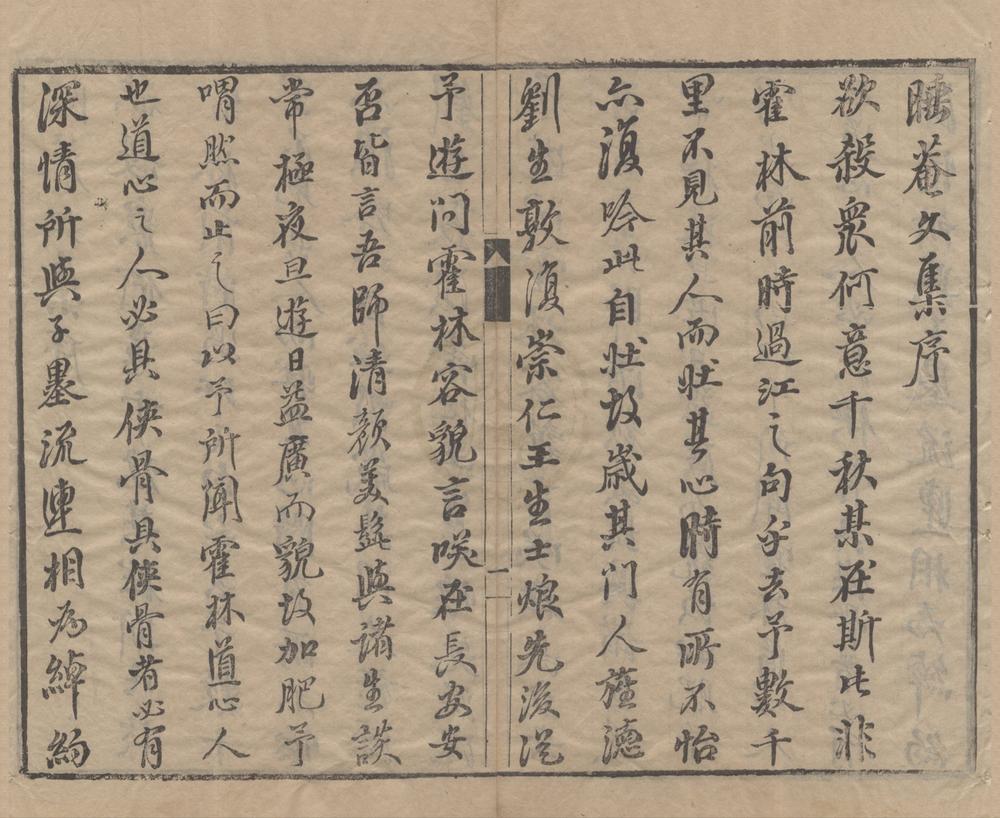 睡菴文集序
欲殺衆何意千秋某在斯此非
霍林前時過江之句乎去予數千
里不見其人而壯其心時有所不怡
亦復吟此自壯故歲其門人旌德
劉生敦復崇仁王生士烺先後從
予遊問霍林容貌言咲在長安安
否皆言吾師清顏美髭與諸生談
常極夜旦遊日益廣而貌故加肥予
喟然而止之曰以予所聞霍林道心人
也道心之人必具俠骨具俠骨者必有
深情所與子墨流連相為綽約
一